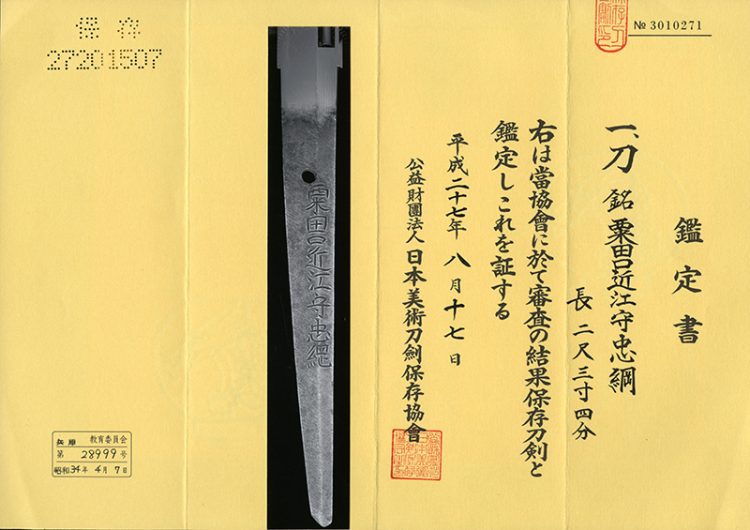 № 3010271
鑑定書
一、刀 銘 粟田口近江守忠綱
長 二尺三寸四分
右は當協會に於て審査の結果保存刀剣と
鑑定しこれを証する
平成二十七年 八月 十七日
公益財團法人 日本美術刀劍保存協會
粟田口近江守忠綱
保存
27201507
兵庫 教育委員会
第 28999 号
昭和34年 4月 7日